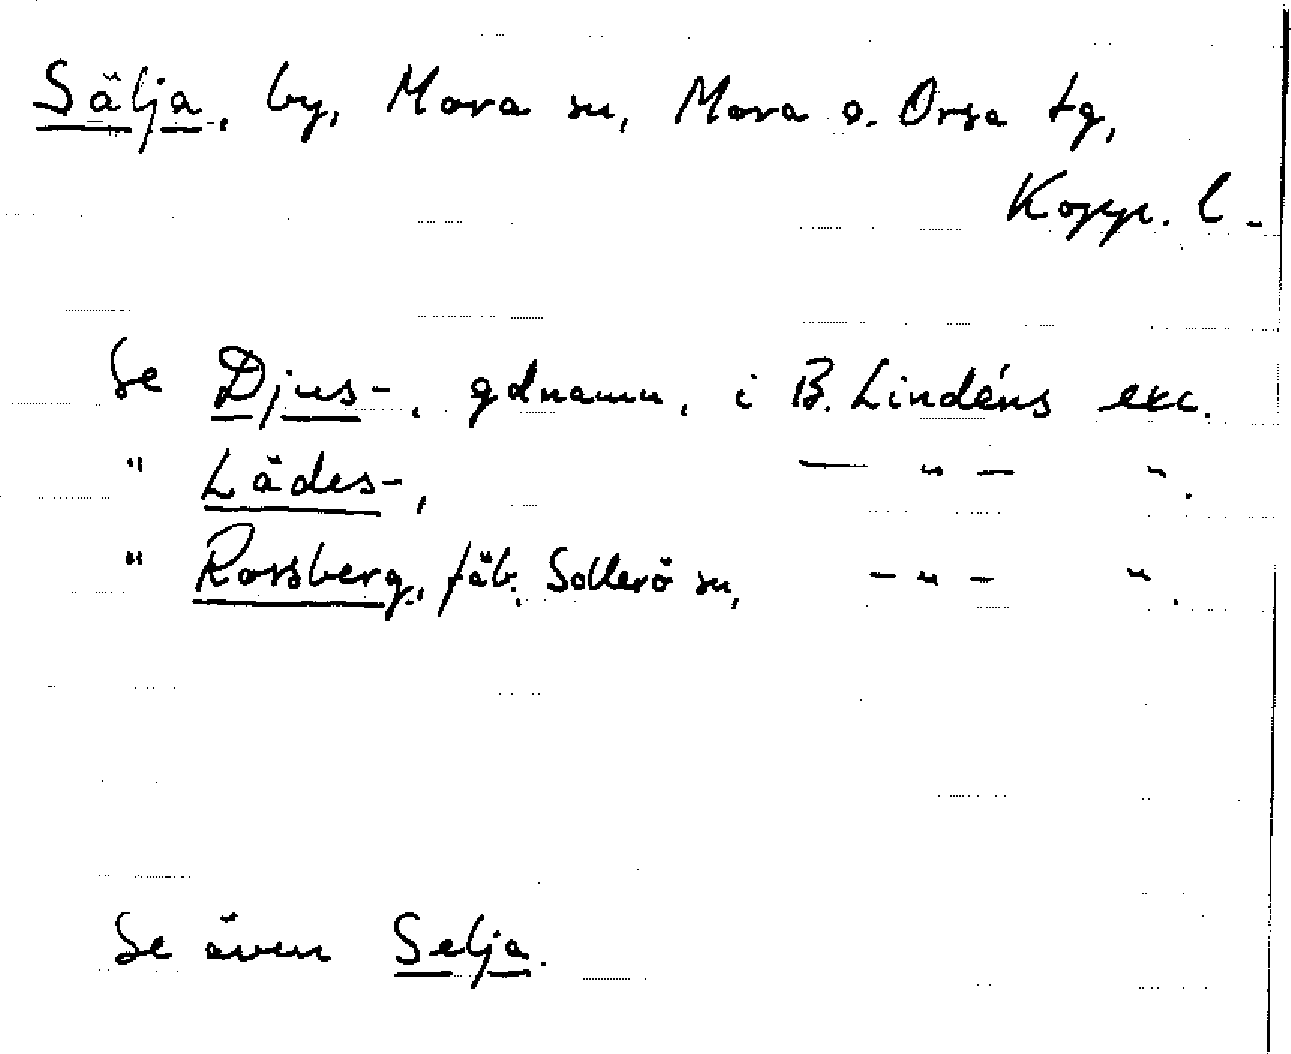 Sälja, by, Mora sn, Mora o. Orsa tg,
Kopp. l.
Se Djus-, gdnamn, i B. Lindéns exc.
" Lädes-, — " — ".
" Rossberg, fäb. Sollerö sn, — " — ".
Se även Selja.